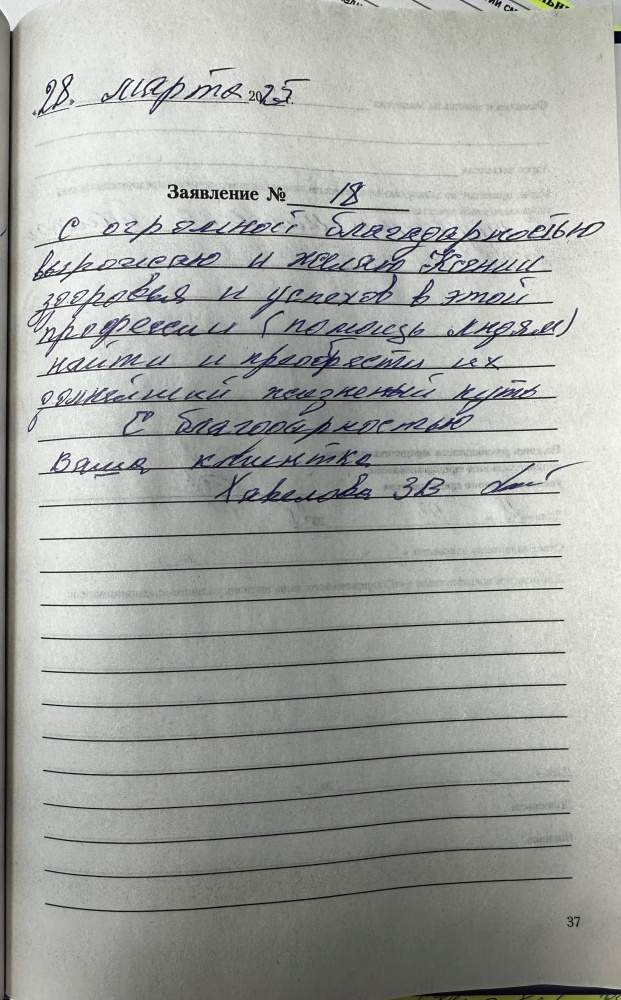 28. марта 2025г.
Заявление № 18
С огромной благодарностью
выражаю и желаю Ксении
здоровья и успехов в этой
профессии (помощь людям)
найти и преобрести их
дальнейший жизненый путь
С благодарностью
Ваша клиентка
ЗВ
37